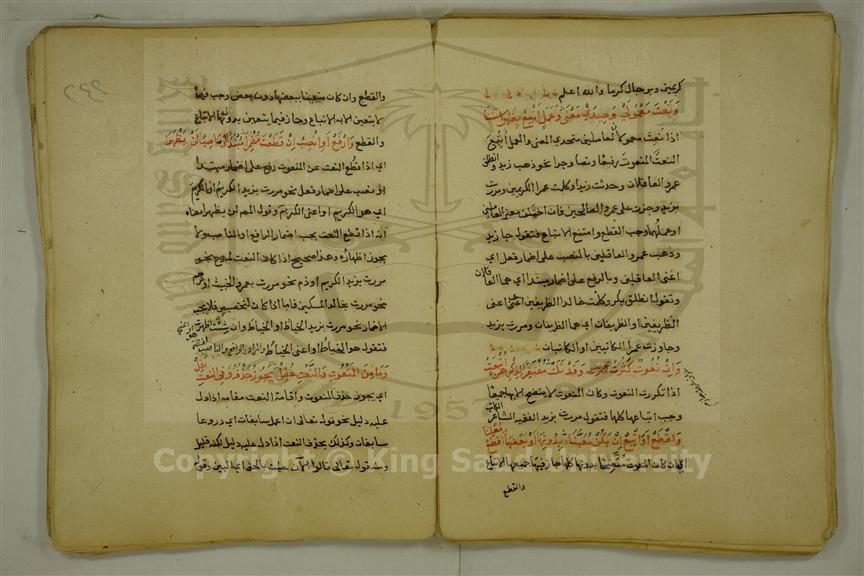 كريمين وبرجال كرما والله اعلم
ونعت معمولي وحيدي معنى وعمل اتبع بغير استثنا
اذا نعت معمولان لعاملين متحدي المعنى والعمل اتبع
النعت المنعوت رفعا ونصبا وجرا نحو ذهب زيد وانطلق
عمرو العاقلان وحدثت زيدا وكلمت عمرا الكريمين ومررت
بزيد وجزت على عمرو الصالحين فان اختلف معنى العاملين
او عملهما وجب القطع وامتنع الاتباع فتقول جا زيد
وذهب عمرو العاقلين بالنصب على اضمار فعل اي
اعني العاقلين وبالرفع على اضمار مبتدا اي هما العاقلان
وتقول انطلق بكر وكلمت خالدا الظريفين اي اعني
الظريفين او الظريفان اي هما الظريفان ومررت بزيد
وجاوزت عمرا الكاتبين او الكاتبان
وان نعوت كثرت وقد تلت مفتقرا لذكرهن اتبعت
اذا تكررت النعوت وكان المنعوت لا يتضح الا بها جميعا
وجب اتباعها كلها فتقول مررت بزيد الفقيه الشاعر
الكاتب
واقطع او اتبع ان يكن معينا بدونها او بعضها اقطع
معلنا
اي ان كان المنعوت متضحا بدونها كلها جاز فيها جميعها الاتباع
والقطع
والقطع وان كان متعينا ببعضها دون بعض وجب فيما
لا يتعين الا به الاتباع وجاز فيما يتعين بدونه الاتباع
والقطع وارفع او انصب ان قطعت مضمرا مبتدا او ناصبا لن يظهرا
اي اذا قطع النعت عن المنعوت رفع على اضمار مبتدا
او نصب على اضمار فعل نحو مررت بزيد الكريم او الكريم
اي هو الكريم او اعني الكريم وقول المصنف لن يظهرا معناه
انه اذا قطع النعت يجب اضمار الرافع او الناصب ولا
يجوز اظهاره وهذا صحيح اذا كان النعت لمدح نحو
مررت بزيد الكريم او ذم نحو مررت بعمرو الخبيث او ترحم
نحو مررت بخالد المسكين فاما اذا كان لتخصيص فلا يجب
الاضمار نحو مررت بزيد الخياط او الخياط وان شئت اظهرت
فتقول هو الخياط او اعني الخياط والمراد بالرافع والناصب
وما من المنعوت والنعت عقل يجوز حذفه وفي النعت يقل
اي يجوز حذف المنعوت واقامة النعت مقامه اذا دل
عليه دليل نحو قوله تعالى ان اعمل سابغات اي دروعا
سابغات وكذلك يحذف النعت اذا دل عليه دليل لكنه قليل
ومنه قوله تعالى قالوا الآن جئت بالحق اي البين وقوله
Copyright © King Saud University
1957